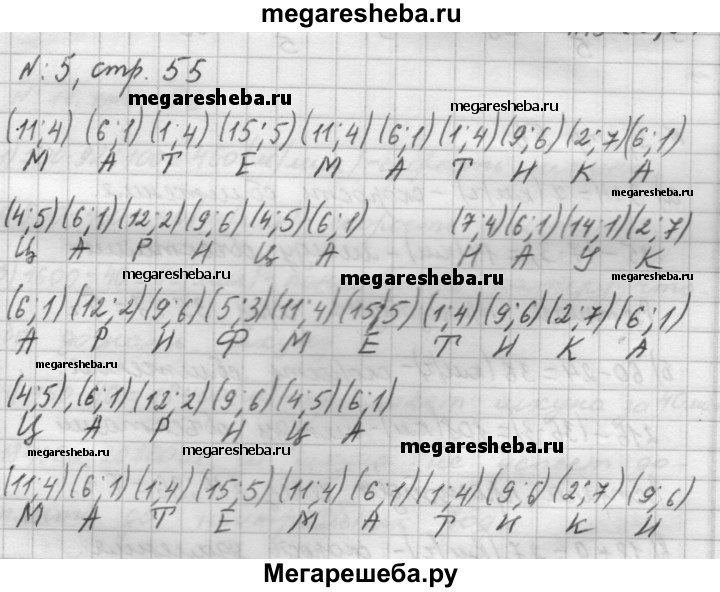 megaresheba.ru
N: 5, стр. 55
megaresheba.ru megaresheba.ru
(11;4) (6;1) (1;4) (15;5) (11;4) (6;1) (1;4) (9;6) (2;7) (6;1)
М А Т Е М А Т И К А
megaresheba.ru
(4;5) (6;1) (12;2) (9;6) (4;5) (6;1) (7;4) (6;1) (14;1) (2;7)
Ц А Р И Ц А Н А У К
megaresheba.ru megaresheba.ru megaresheba.ru
(6;1) (12;2) (9;6) (5;3) (11;4) (15;5) (1;4) (9;6) (2;7) (6;1)
А Р И Ф М Е Т И К А
megaresheba.ru
(4;5), (6;1) (12;2) (9;6) (4;5) (6;1)
Ц А Р И Ц А
megaresheba.ru megaresheba.ru megaresheba.ru
(11;4) (6;1) (1;4) (15;5) (11;4) (6;1) (1;4) (9;6) (2;7) (9;6)
М А Т Е М А Т И К И
Мегарешеба.ру